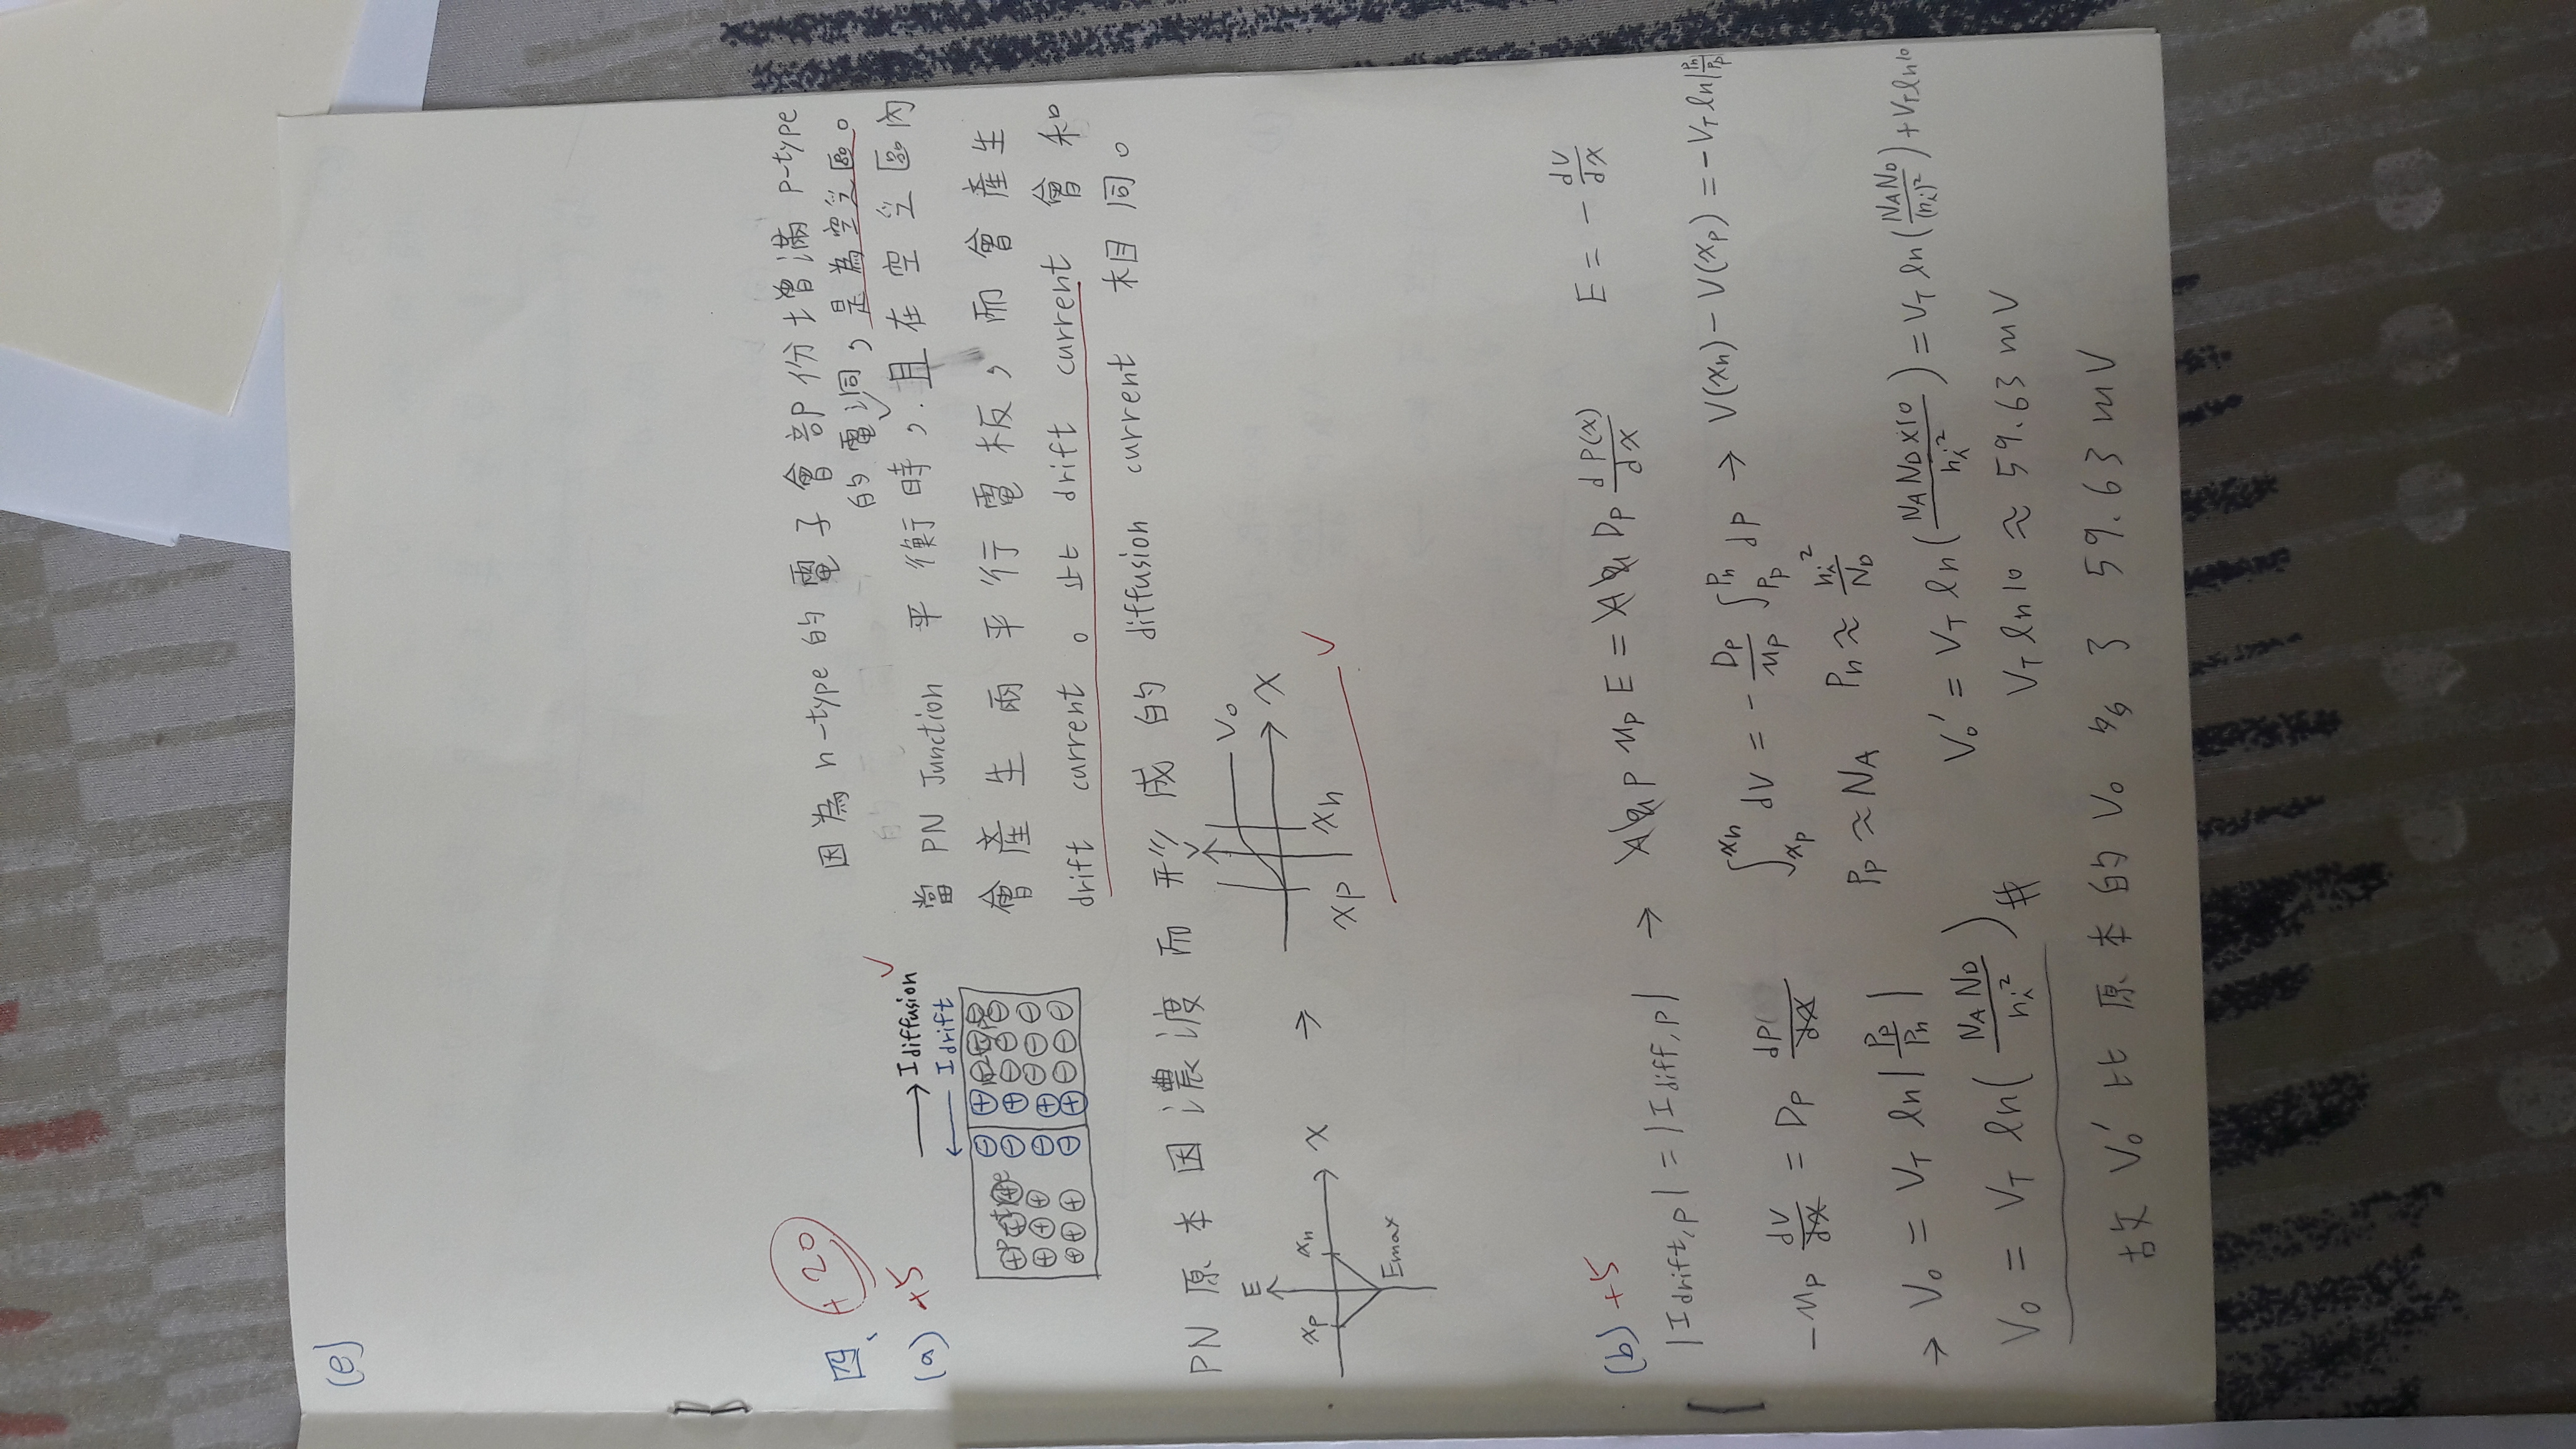 (e)
四、 +20
因為 n-type 的電子會部份填滿 p-type
的電洞，是為空乏區。
(a) +5
→ I diffusion ✓
← I drift
p-type
當 PN Junction 平衡時，且在空乏區內
會產生兩平行電板，而會產生
drift current。此 drift current 會和
PN 原本因濃渡而形成的 diffusion current 相同。
E
xp xn x
Emax
→
V
V₀
x
xp xn ✓
(b) +5
|I drift,p| = |I diff,p| → Aq p μp E = Aq Dp dP(x)/dx E = - dV/dx
-μp dV/dx = Dp dP/dx ∫_xp^xn dV = - Dp/μp ∫_Pp^Pn dp → V(xn) - V(xp) = -V_T ln|Pn/Pp|
Pp ≈ N_A Pn ≈ ni²/N_D
→ V₀ = V_T ln|Pp/Pn|
V₀ = V_T ln(N_A N_D/ni²)#
V₀' = V_T ln(N_A N_D×10/ni²) = V_T ln(N_A N_D/(ni)²) + V_T ln10
V_T ln10 ≈ 59.63 mV
故 V₀' 比原本的 V₀ 多了 59.63 mV